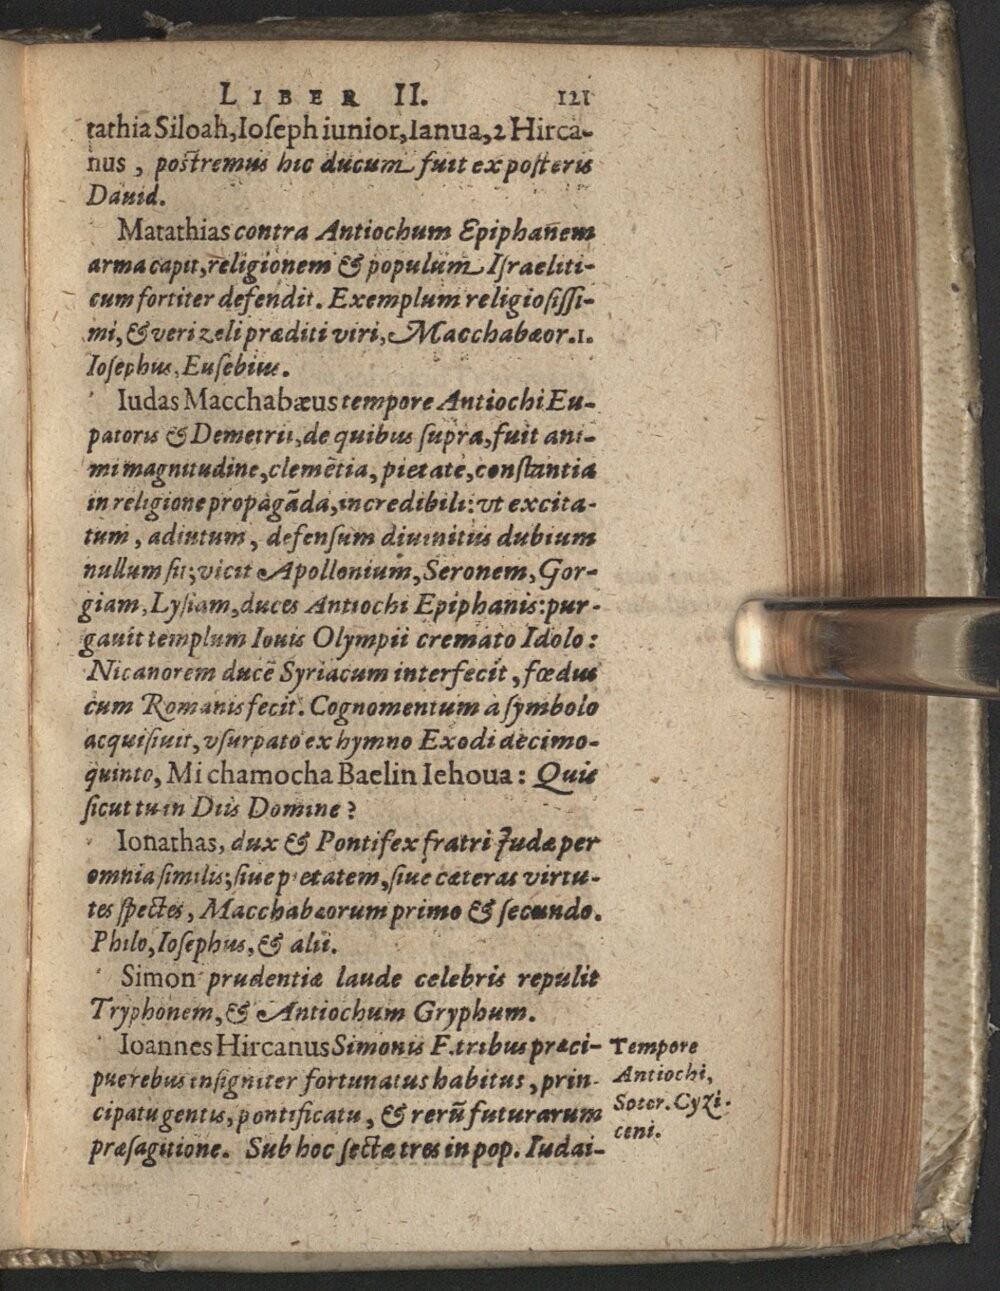 LIBER II. 121
tathia Siloah, Ioseph iunior, Ianua, 2 Hirca-
nus, postremus hic ducum fuit ex posteris
Dauid.
Matathias contra Antiochum Epiphanem
arma capit, religionem & populum Israeliti-
cum fortiter defendit. Exemplum religiosissi-
mi, & veri zeli præditi viri, Macchabæor. 1.
Iosephus, Eusebius.
Iudas Macchabæus tempore Antiochi Eu-
patoris & Demetrii, de quibus supra, fuit ani-
mi magnitudine, clemẽtia, pietate, constantia
in religione propagãda, incredibili: vt excita-
tum, adiutum, defensum diuinitùs dubium
nullum sit; vicit Apollonium, Seronem, Gor-
giam, Lysiam, duces Antiochi Epiphanis: pur-
gauit templum Iouis Olympii cremato Idolo:
Nicanorem ducẽ Syriacum interfecit, fœdus
cum Romanis fecit. Cognomentum à symbolo
acquisiuit, vsurpato ex hymno Exodi decimo-
quinto, Mi chamocha Baelin Iehoua: Quis
sicut tu in Diis Domine?
Ionathas, dux & Pontifex fratri Iudæ per
omnia similis; siue pietatem, siue cæteras virtu-
tes spectes, Macchabæorum primo & secundo.
Philo, Iosephus, & alii.
Simon prudentiæ laude celebris repulit
Tryphonem, & Antiochum Gryphum.
Ioannes Hircanus Simonis F. tribus præci-
puè rebus insigniter fortunatus habitus, prin-
cipatu gentis, pontificatu, & rerũ futurarum
præsagitione. Sub hoc sectæ tres in pop. Iudai-
Tempore
Antiochi,
Soter. Cyzi-
ceni.